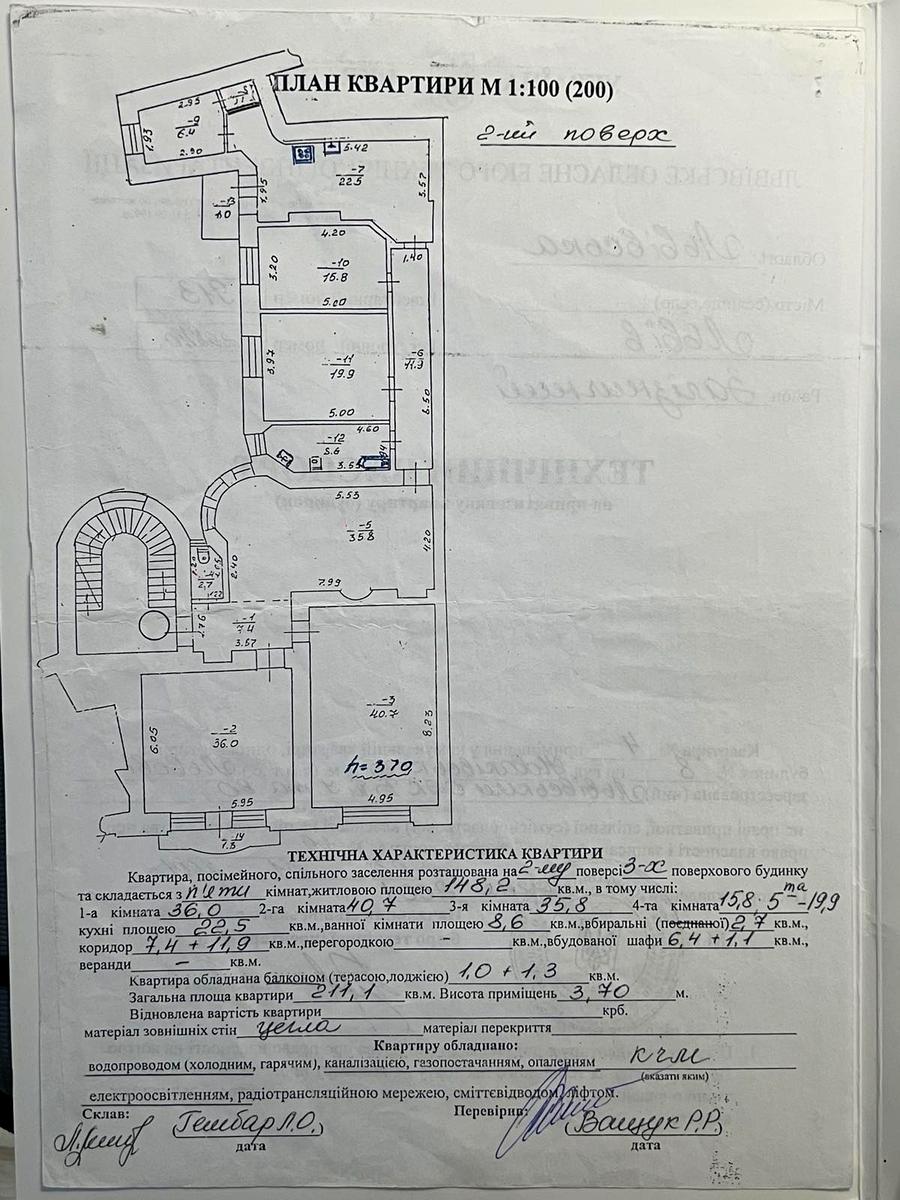 ПЛАН КВАРТИРИ М 1:100 (200)
2-ий поверх
2.95
-9
6.4
1.93
2.90
5.42
-7
22.5
5.57
1.95
-13
1.0
4.20
1.40
3.20
-10
15.8
5.00
3.97
-11
19.9
-6
11.9
5.00
8.50
4.60
-12
8.6
3.55
5.53
-5
35.8
4.20
2.40
7.99
2.7
1.76
-1
7.4
3.57
-2
36.0
6.05
-3
40.7
8.23
h=370
5.95
4.95
-14
1.3
ТЕХНІЧНА ХАРАКТЕРИСТИКА КВАРТИРИ
Квартира, посімейного, спільного заселення розташована на 2-му поверсі 3-х поверхового будинку
та складається з п'яти кімнат, житловою площею 148,2 кв.м., в тому числі:
1-а кімната 36,0 2-га кімната 40,7 3-я кімната 35,8 4-та кімната 15,8 5та-19,9
кухні площею 22,5 кв.м., ванної кімнати площею 8,6 кв.м., вбиральні (поєднаної) 2,7 кв.м.,
коридор 7,4 + 11,9 кв.м., перегородкою - кв.м., вбудованої шафи 6,4 + 1,1 кв.м.,
веранди - кв.м.
Квартира обладнана балконом (терасою, лоджією) 1,0 + 1,3 кв.м.
Загальна площа квартири 211,1 кв.м. Висота приміщень 3,70 м.
Відновлена вартість квартири крб.
матеріал зовнішніх стін цегла матеріал перекриття
Квартиру обладнано:
водопроводом (холодним, гарячим), каналізацією, газопостачанням, опаленням кчм
(вказати яким)
електроосвітленням, радіотрансляційною мережею, сміттєвідводом, ліфтом.
Склав: Гембар Л.О. Перевірив: Ващук Р.Р.
дата дата